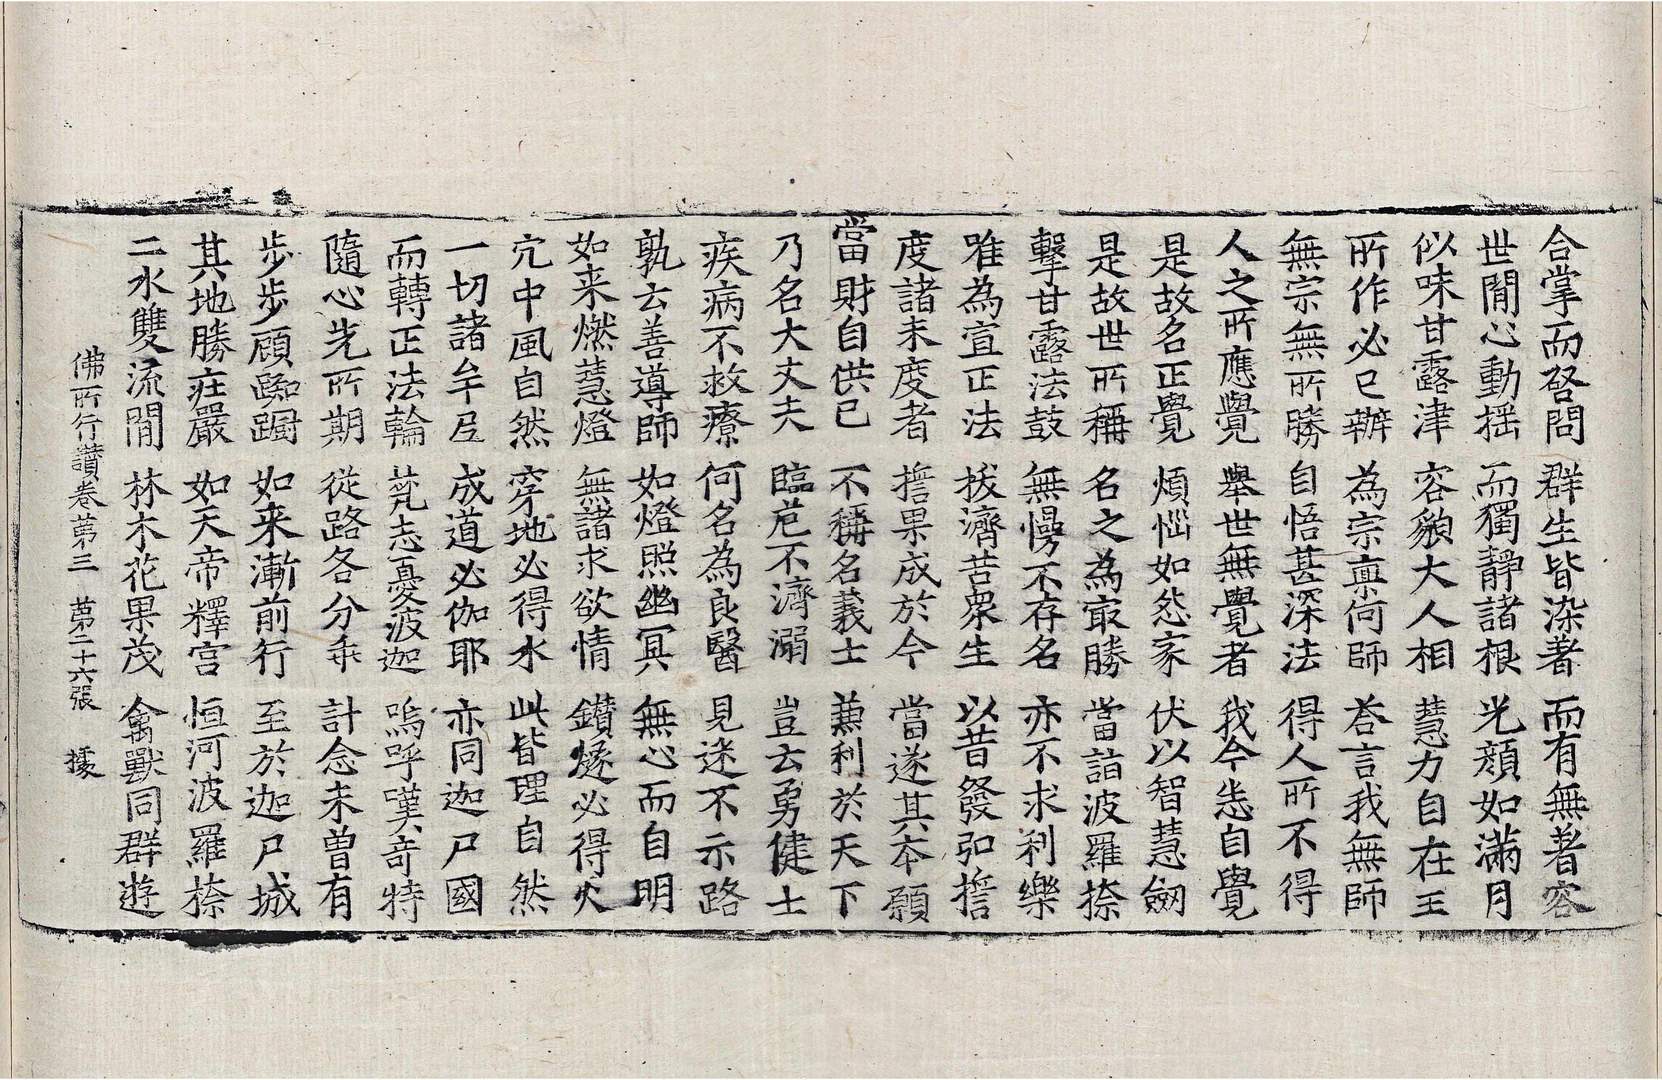 合掌而啓問 群生皆染著 而有無著容
世閒心動揺 而獨靜諸根 光顔如滿月
似味甘露津 容貌大人相 慧力自在王
所作必已辦 為宗稟何師 荅言我無師
無宗無所勝 自悟甚深法 得人所不得
人之所應覺 舉世無覺者 我今悉自覺
是故名正覺 煩惱如怨家 伏以智慧劒
是故世所稱 名之為㝡勝 當詣波羅㮈
擊甘露法鼓 無慢不存名 亦不求利樂
唯為宣正法 拔濟苦衆生 以昔發弘誓
度諸未度者 誓果成於今 當遂其本願
當財自供已 不稱名義士 兼利於天下
乃名大丈夫 臨危不濟溺 豈云勇健士
疾病不救療 何名為良醫 見迷不示路
孰云善導師 如燈照幽冥 無心而自明
如来燃慧燈 無諸求欲情 鑚燧必得火
宂中風自然 穿地必得水 此皆理自然
一切諸牟尼 成道必伽耶 亦同迦尸國
而轉正法輪 梵志憂波迦 嗚呼嘆奇特
隨心先所期 從路各分乖 計念未曽有
步步顧踟蹰 如来漸前行 至於迦尸城
其地勝莊嚴 如天帝釋宮 恒河波羅㮈
二水雙流閒 林木花果茂 禽獸同群遊
佛所行讃卷第三 第二十六張 據